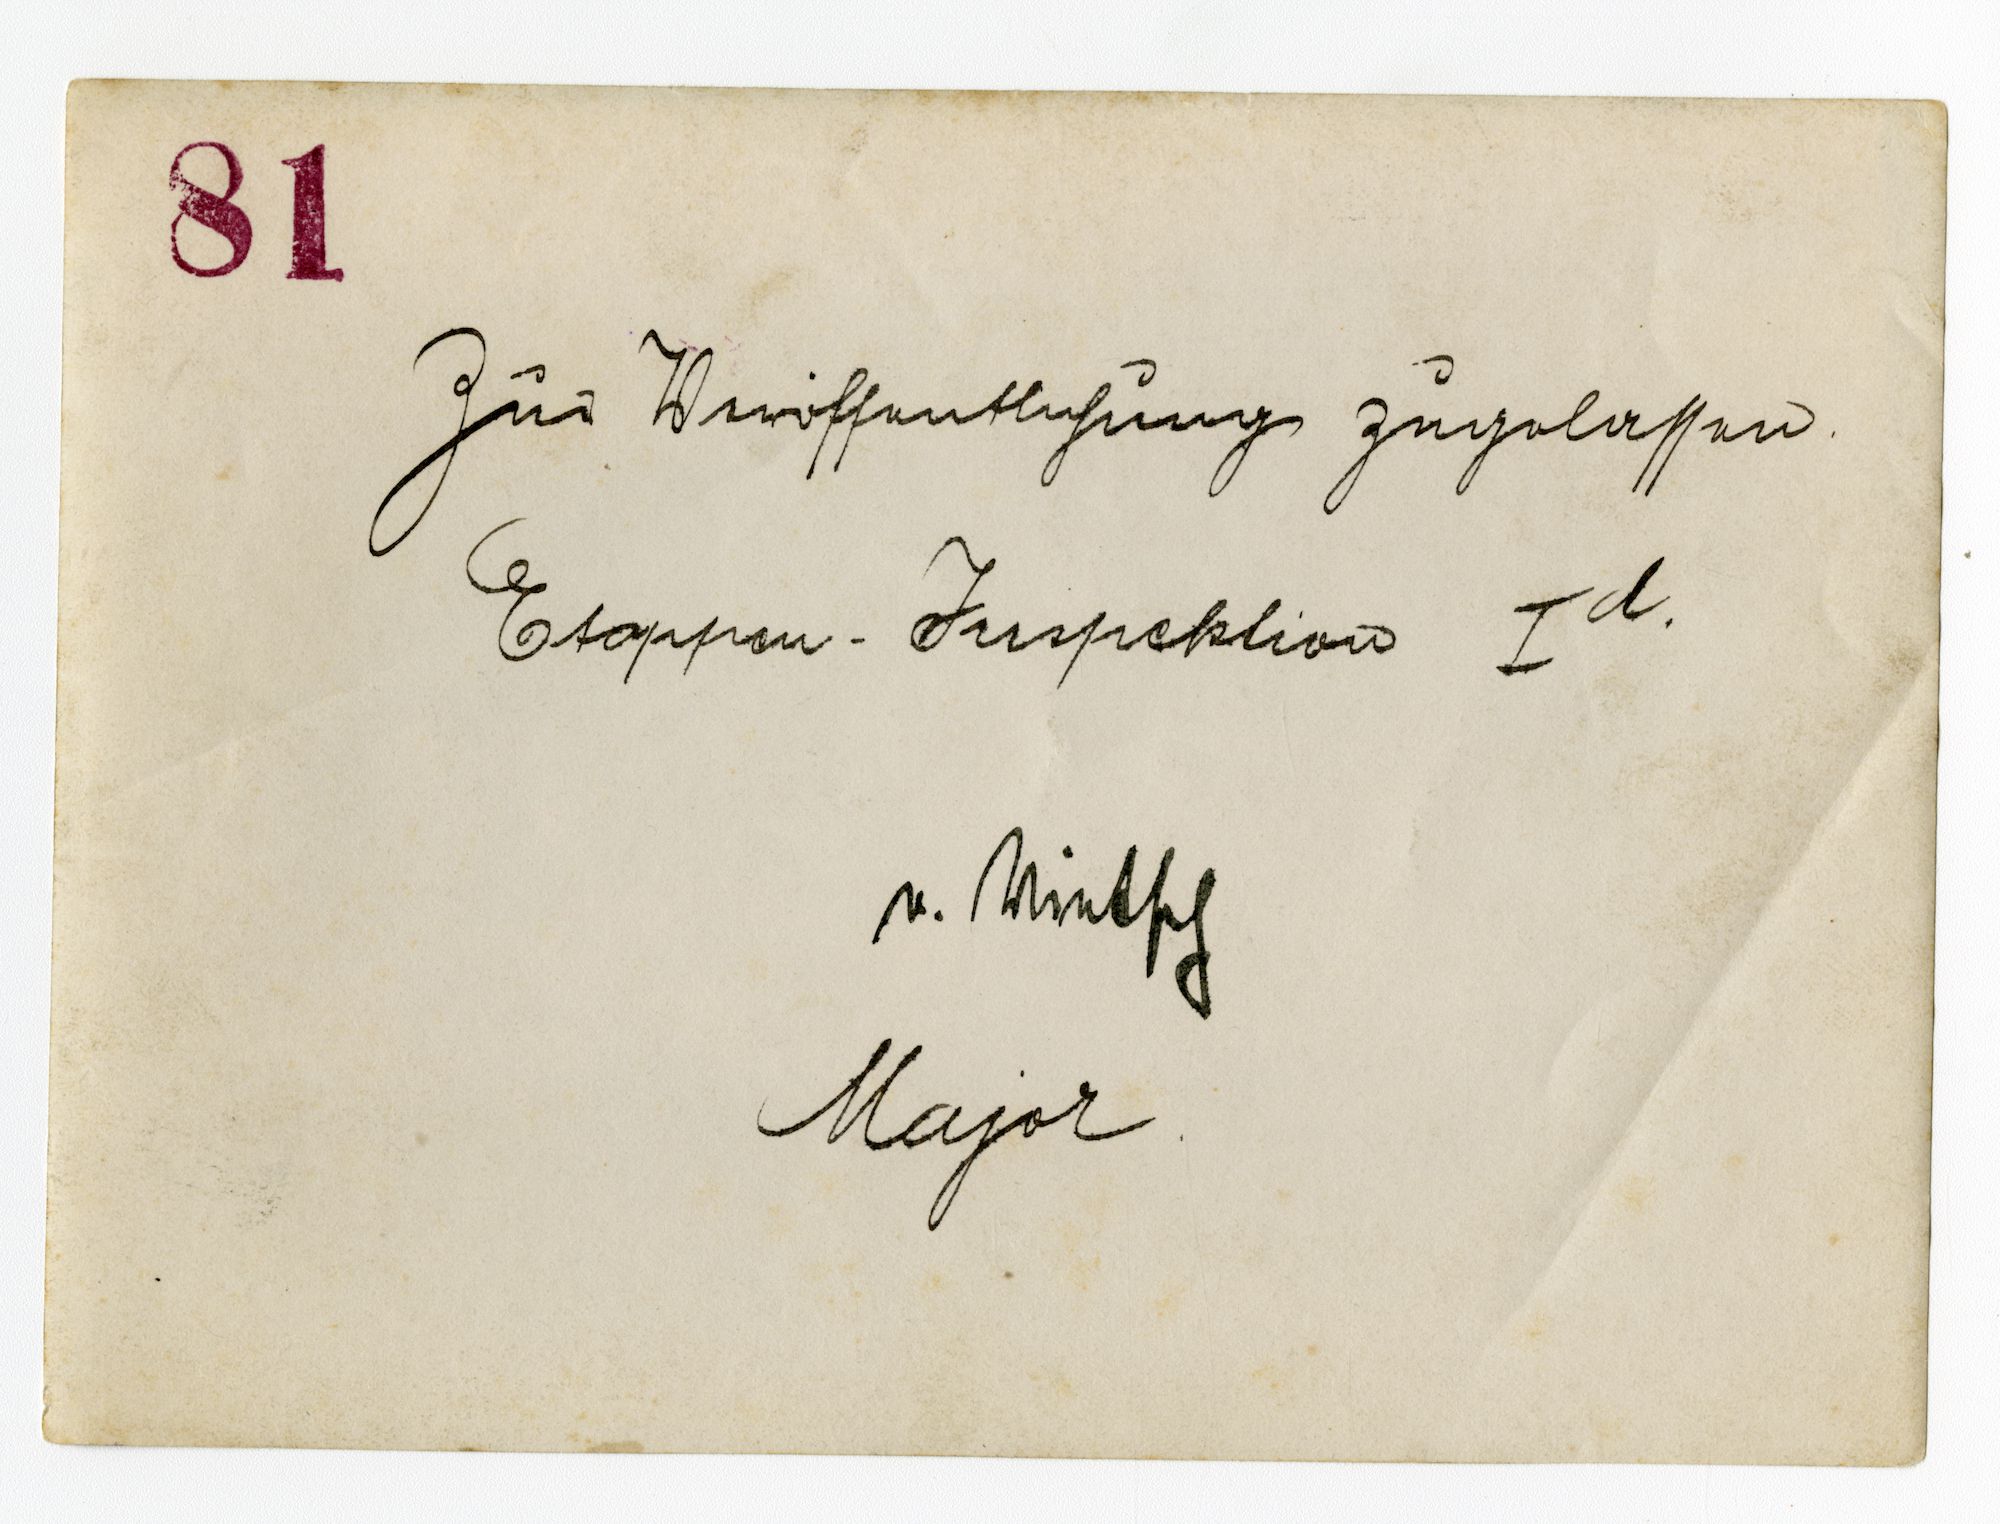 81
Zur Veröffentlichung zugelassen.
Etappen-Inspektion I d.
v. Wintsch
Major.